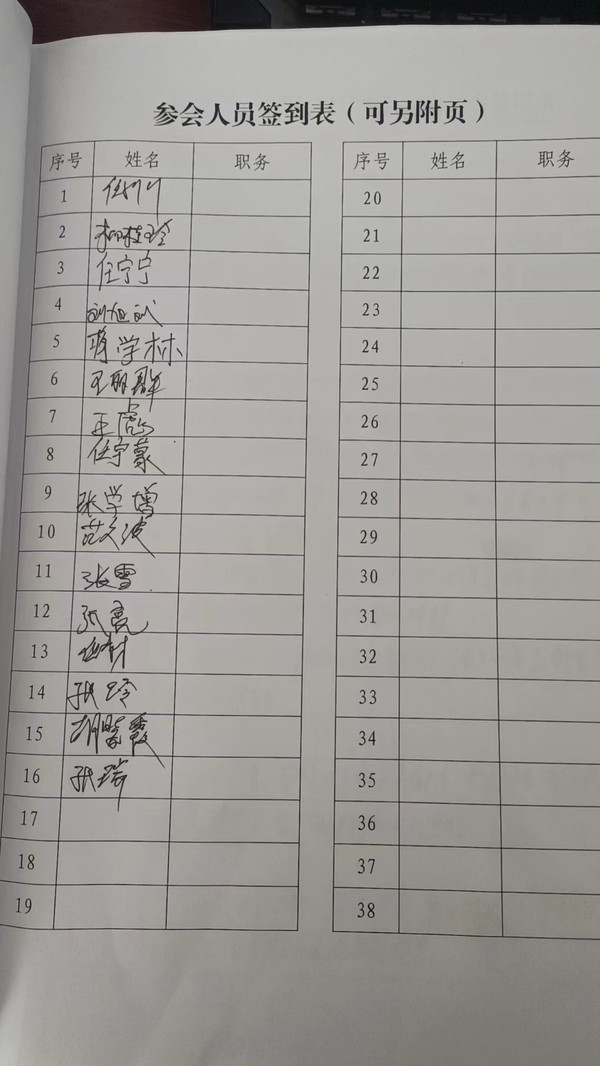 参会人员签到表（可另附页）
序号 姓名 职务 序号 姓名 职务
1 20
2 柳桂玲 21
3 任宁宁 22
4 刘旭武 23
5 蒋学林 24
6 王丽群 25
7 王虎 26
8 任宇蒙 27
9 张学增 28
10 范文波 29
11 张雪 30
12 张亮 31
13 32
14 张玲 33
15 胡晓霞 34
16 张瑞 35
17 36
18 37
19 38